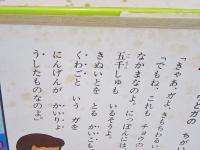 とガのちが
「きゃあ、ガよ。きもちわるい
「でもね、これも チョウの
なかまなのよ。にっぽんには、
五千しゅも いるそうよ。
きぬいとを とる かいこも、
くわごと いう ガを
にんげんが かいりょ
うしたものなのよ。」